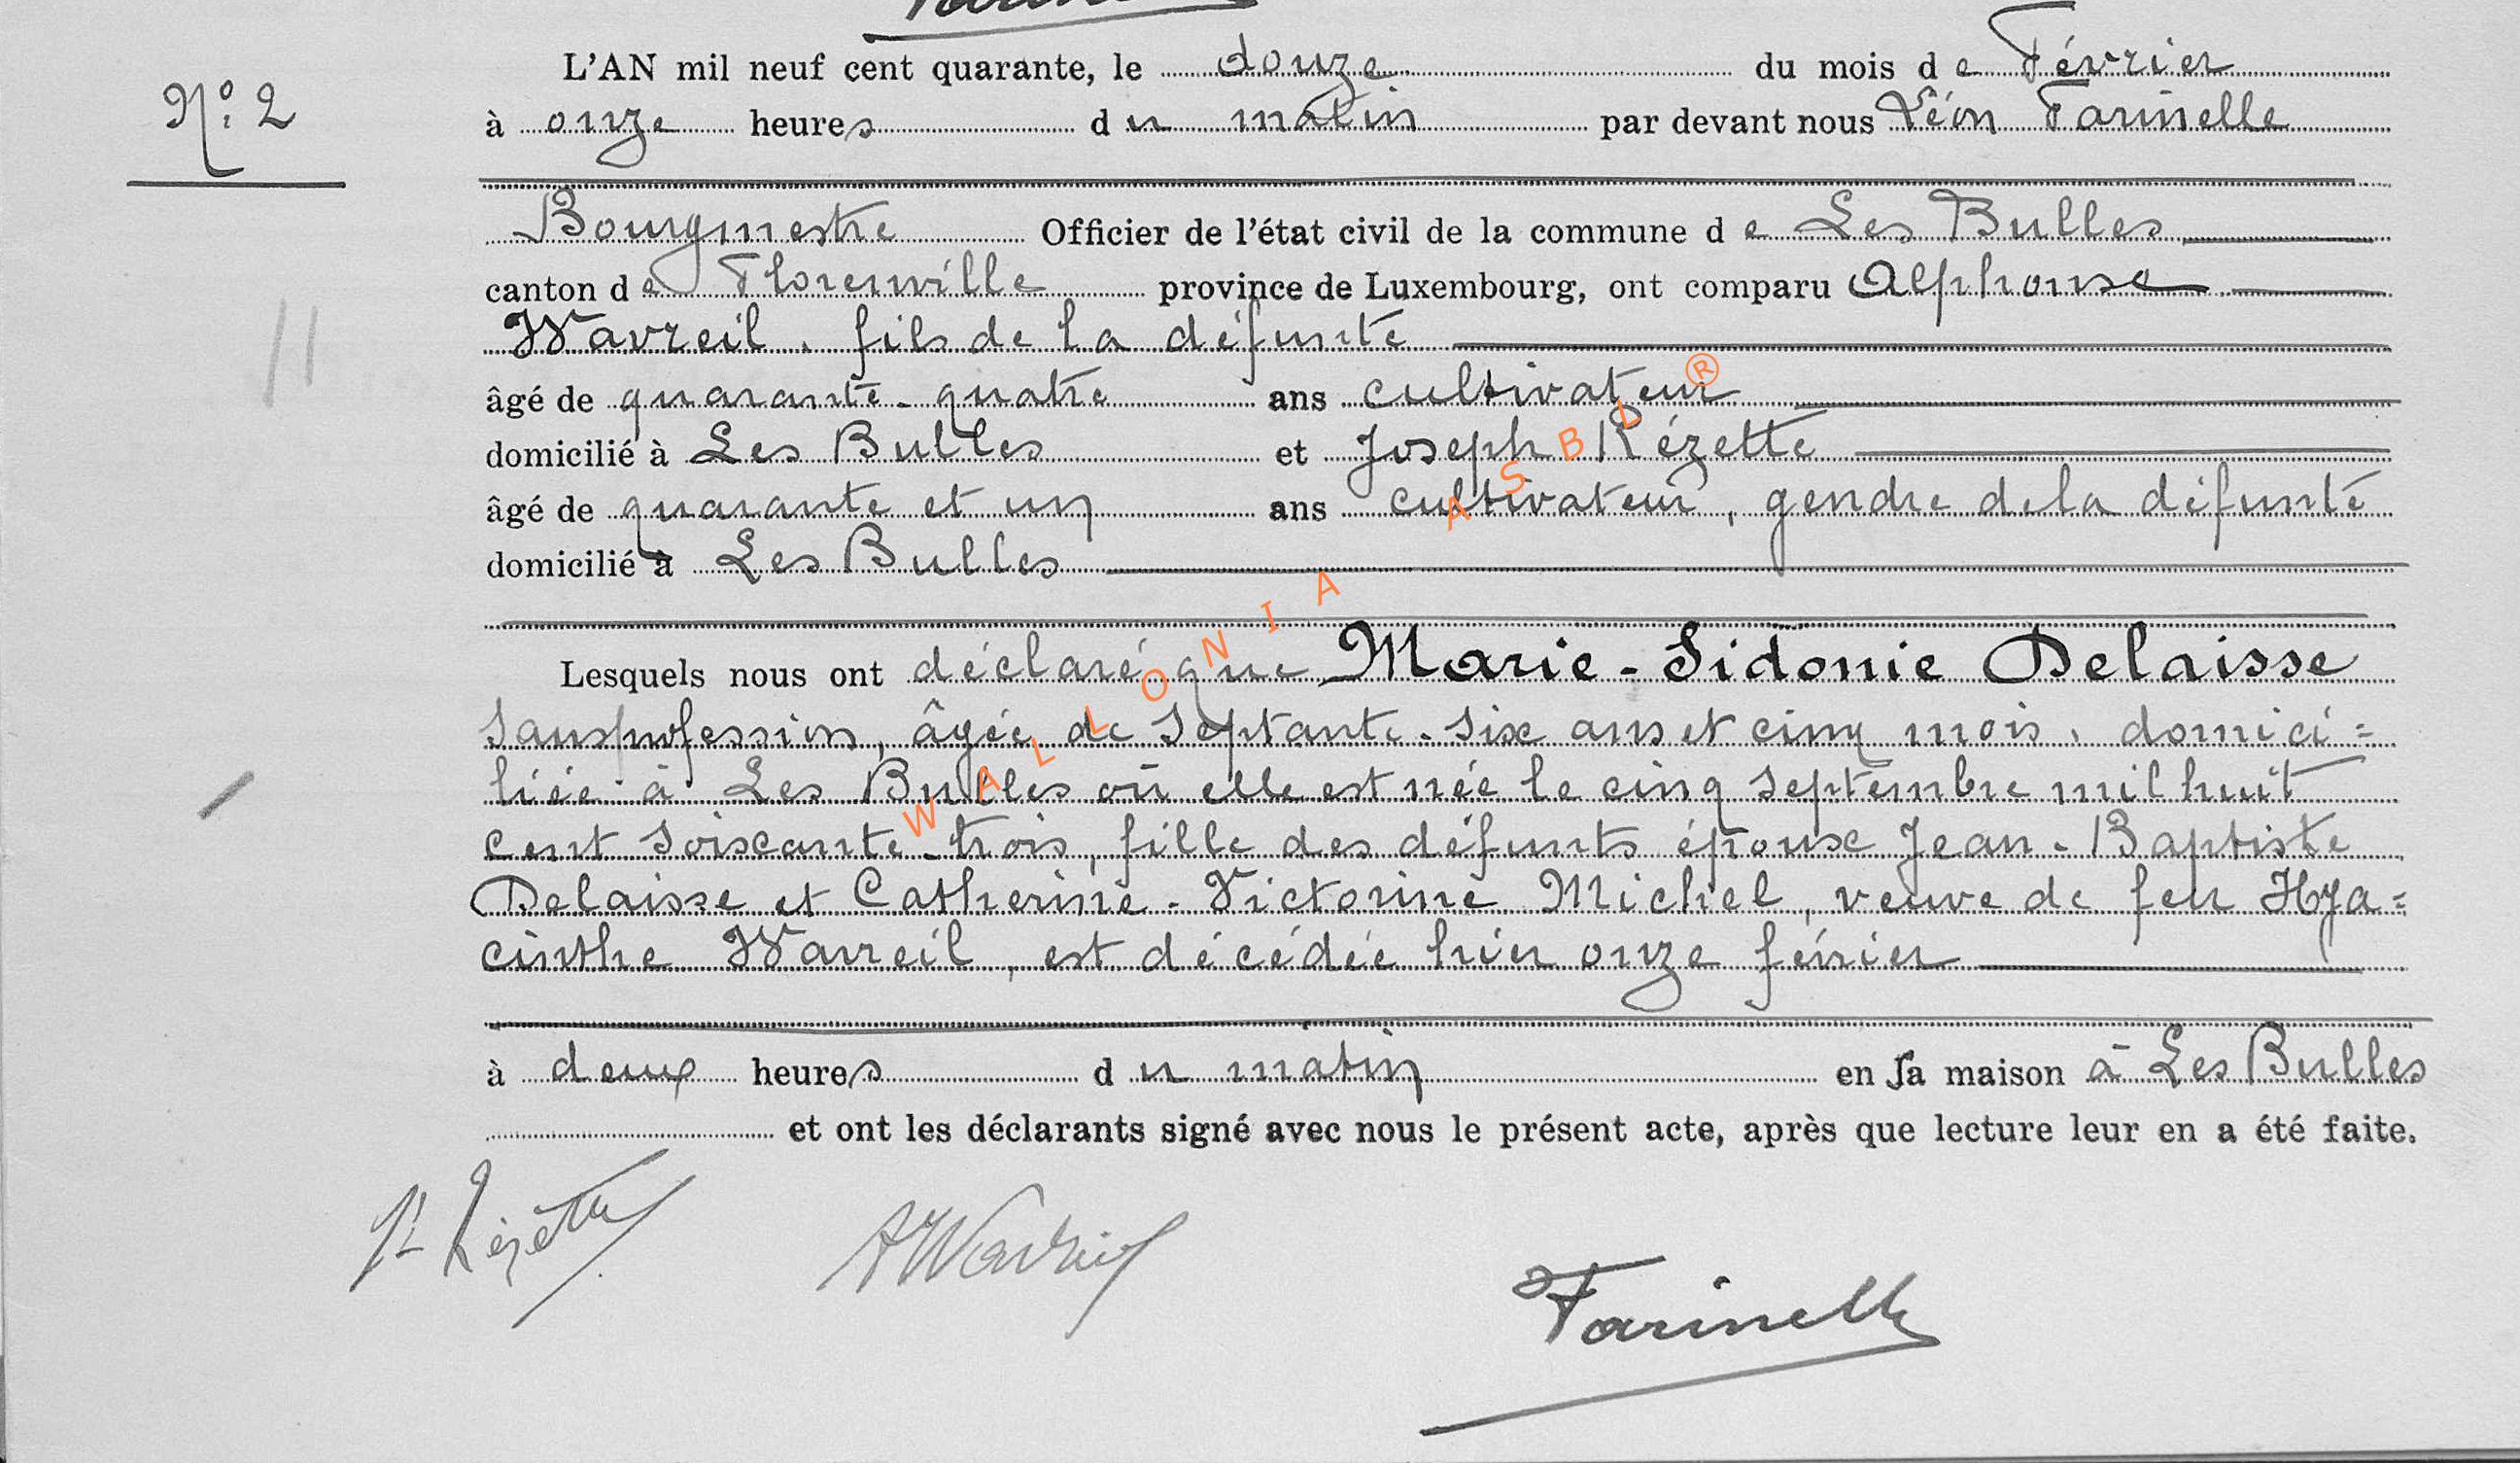 L'AN mil neuf cent quarante, le douze du mois de Février
N° 2
à onze heures du matin par devant nous Léon Farinelle
Bourgmestre Officier de l'état civil de la commune de Les Bulles
canton de Florenville province de Luxembourg, ont comparu Alphonse
Wavreil, fils de la défunte
âgé de quarante-quatre ans cultivateur
domicilié à Les Bulles et Joseph Rézette
âgé de quarante et un ans cultivateur, gendre de la défunte
domicilié à Les Bulles
Lesquels nous ont déclaré que Marie-Sidonie Delaisse
sans profession, âgée de septante-six ans et cinq mois, domici=
liée à Les Bulles où elle est née le cinq septembre mil huit
cent soixante-trois, fille des défunts époux Jean-Baptiste
Delaisse et Catherine-Victorine Michel, veuve de feu Hya=
cinthe Wavreil, est décédée hier onze février
à deux heures du matin en sa maison à Les Bulles
et ont les déclarants signé avec nous le présent acte, après que lecture leur en a été faite.
Rézette AWavreil Farinelle
WALLONIA ASBL ®